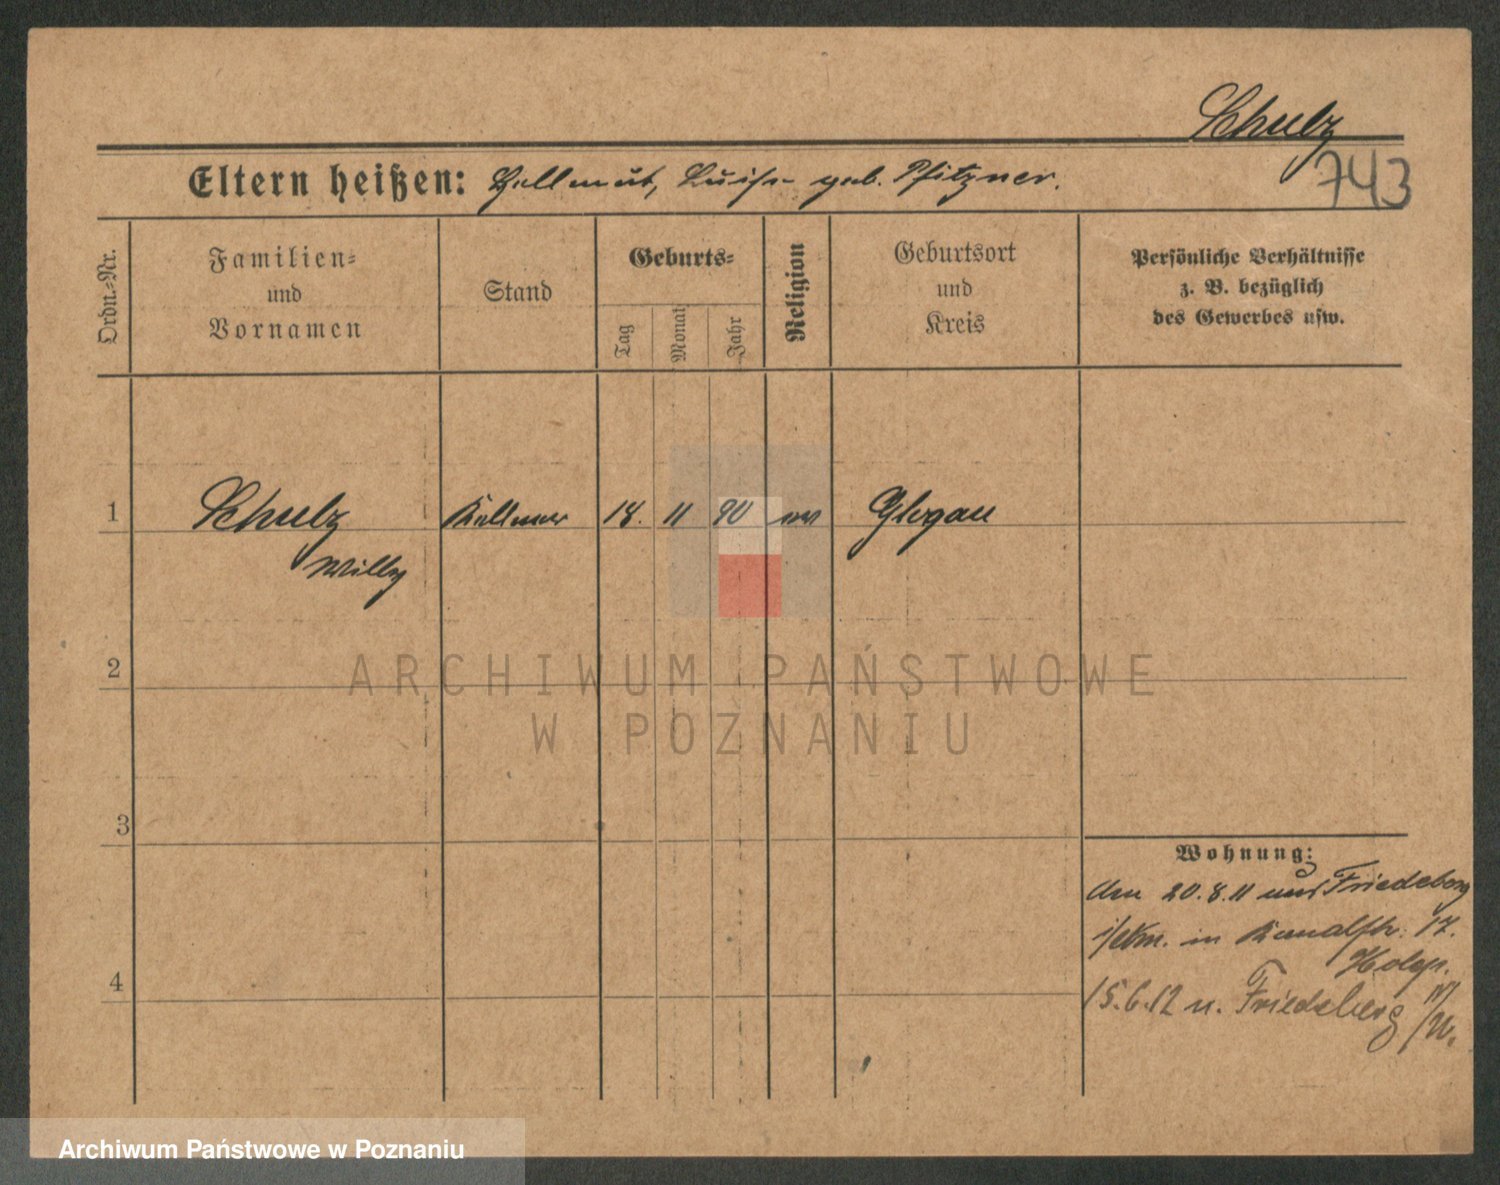 Schulz
743
Eltern heißen: Hellmut, Luise geb. Pfitzner.
Ordn.-Nr.
Familien-
und
Vornamen
Stand
Geburts-
Tag
Monat
Jahr
Religion
Geburtsort
und
Kreis
Persönliche Verhältnisse
z. B. bezüglich
des Gewerbes usw.
1 Schulz Kellner 18. 11 90 ev Glogau
Willy
2
3
4
Wohnung:
den 20.8.11 aus Friedeberg
in Kanalstr. 17.
15.6.12 n. Friedeberg
ARCHIWUM PAŃSTWOWE
W POZNANIU
Archiwum Państwowe w Poznaniu